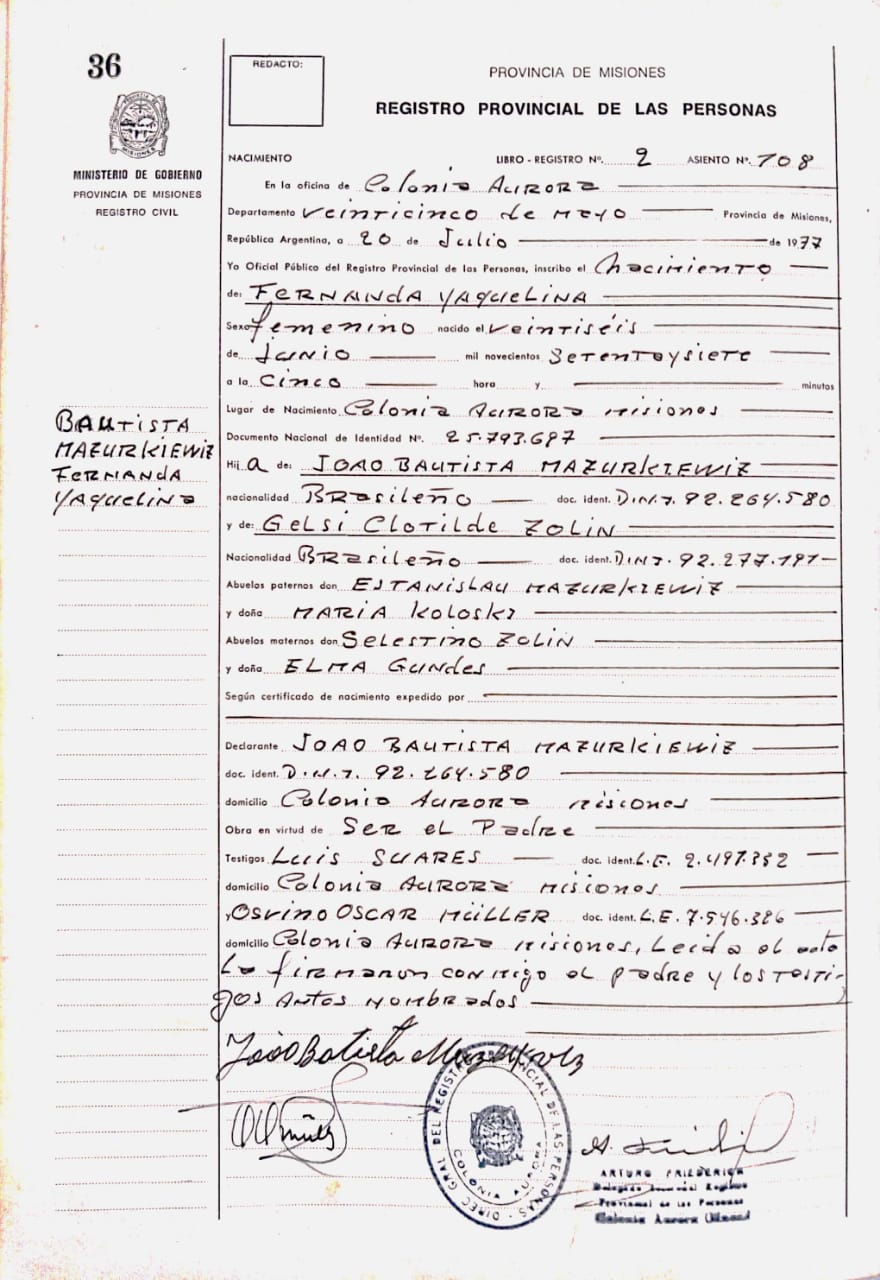 36
REDACTO:
PROVINCIA DE MISIONES
REGISTRO PROVINCIAL DE LAS PERSONAS
PROVINCIA DE MISIONES
MINISTERIO DE GOBIERNO
PROVINCIA DE MISIONES
REGISTRO CIVIL
NACIMIENTO LIBRO - REGISTRO Nº. 2 ASIENTO Nº. 708
En la oficina de Colonia AURORA
Departamento Veinticinco de Mayo Provincia de Misiones,
República Argentina, a 20 de Julio de 1977
Yo Oficial Público del Registro Provincial de las Personas, inscribo el Nacimiento
de: FERNANDA YAQUELINA
Sexo femenino nacido el veintiséis
de Junio mil novecientos Setentaysiete
a la Cinco hora y minutos
Lugar de Nacimiento Colonia AURORA Misiones
Documento Nacional de Identidad Nº. 25.793.687
Hij a de: JOAO BAUTISTA MAZURKIEWIZ
nacionalidad BRasileño doc. ident. D.N.I. 92.264.580
y de: GELSI Clotilde ZOLIN
Nacionalidad BRasileño doc. ident. D.N.I. 92.277.191
Abuelos paternos don ESTANISLAU MAZURKIEWIZ
y doña MARIA KOLOSKI
Abuelos maternos don SELESTINO ZOLIN
y doña ELMA GUNDES
Según certificado de nacimiento expedido por
Declarante JOAO BAUTISTA MAZURKIEWIZ
doc. ident. D.N.I. 92.264.580
domicilio Colonia AURORA Misiones
Obra en virtud de SER el Padre
Testigos LUIS SUARES doc. ident. L.E. 2.497.352
domicilio Colonia AURORA Misiones
y OSVINO OSCAR MÜLLER doc. ident. L.E. 7.546.386
domicilio Colonia AURORA Misiones, Leida el acta
La firmaron conmigo el padre y los testi-
gos ANTES NOMBRADOS
BAUTISTA
MAZURKIEWIZ
FERNANDA
YAQUELINA
João Batista
DIREC. GRAL DEL REGISTRO PROVINCIAL DE LAS PERSONAS
COLONIA AURORA
ARTURO FRIEDERICH
Delegado Registro
Provincial de las Personas
Colonia Aurora